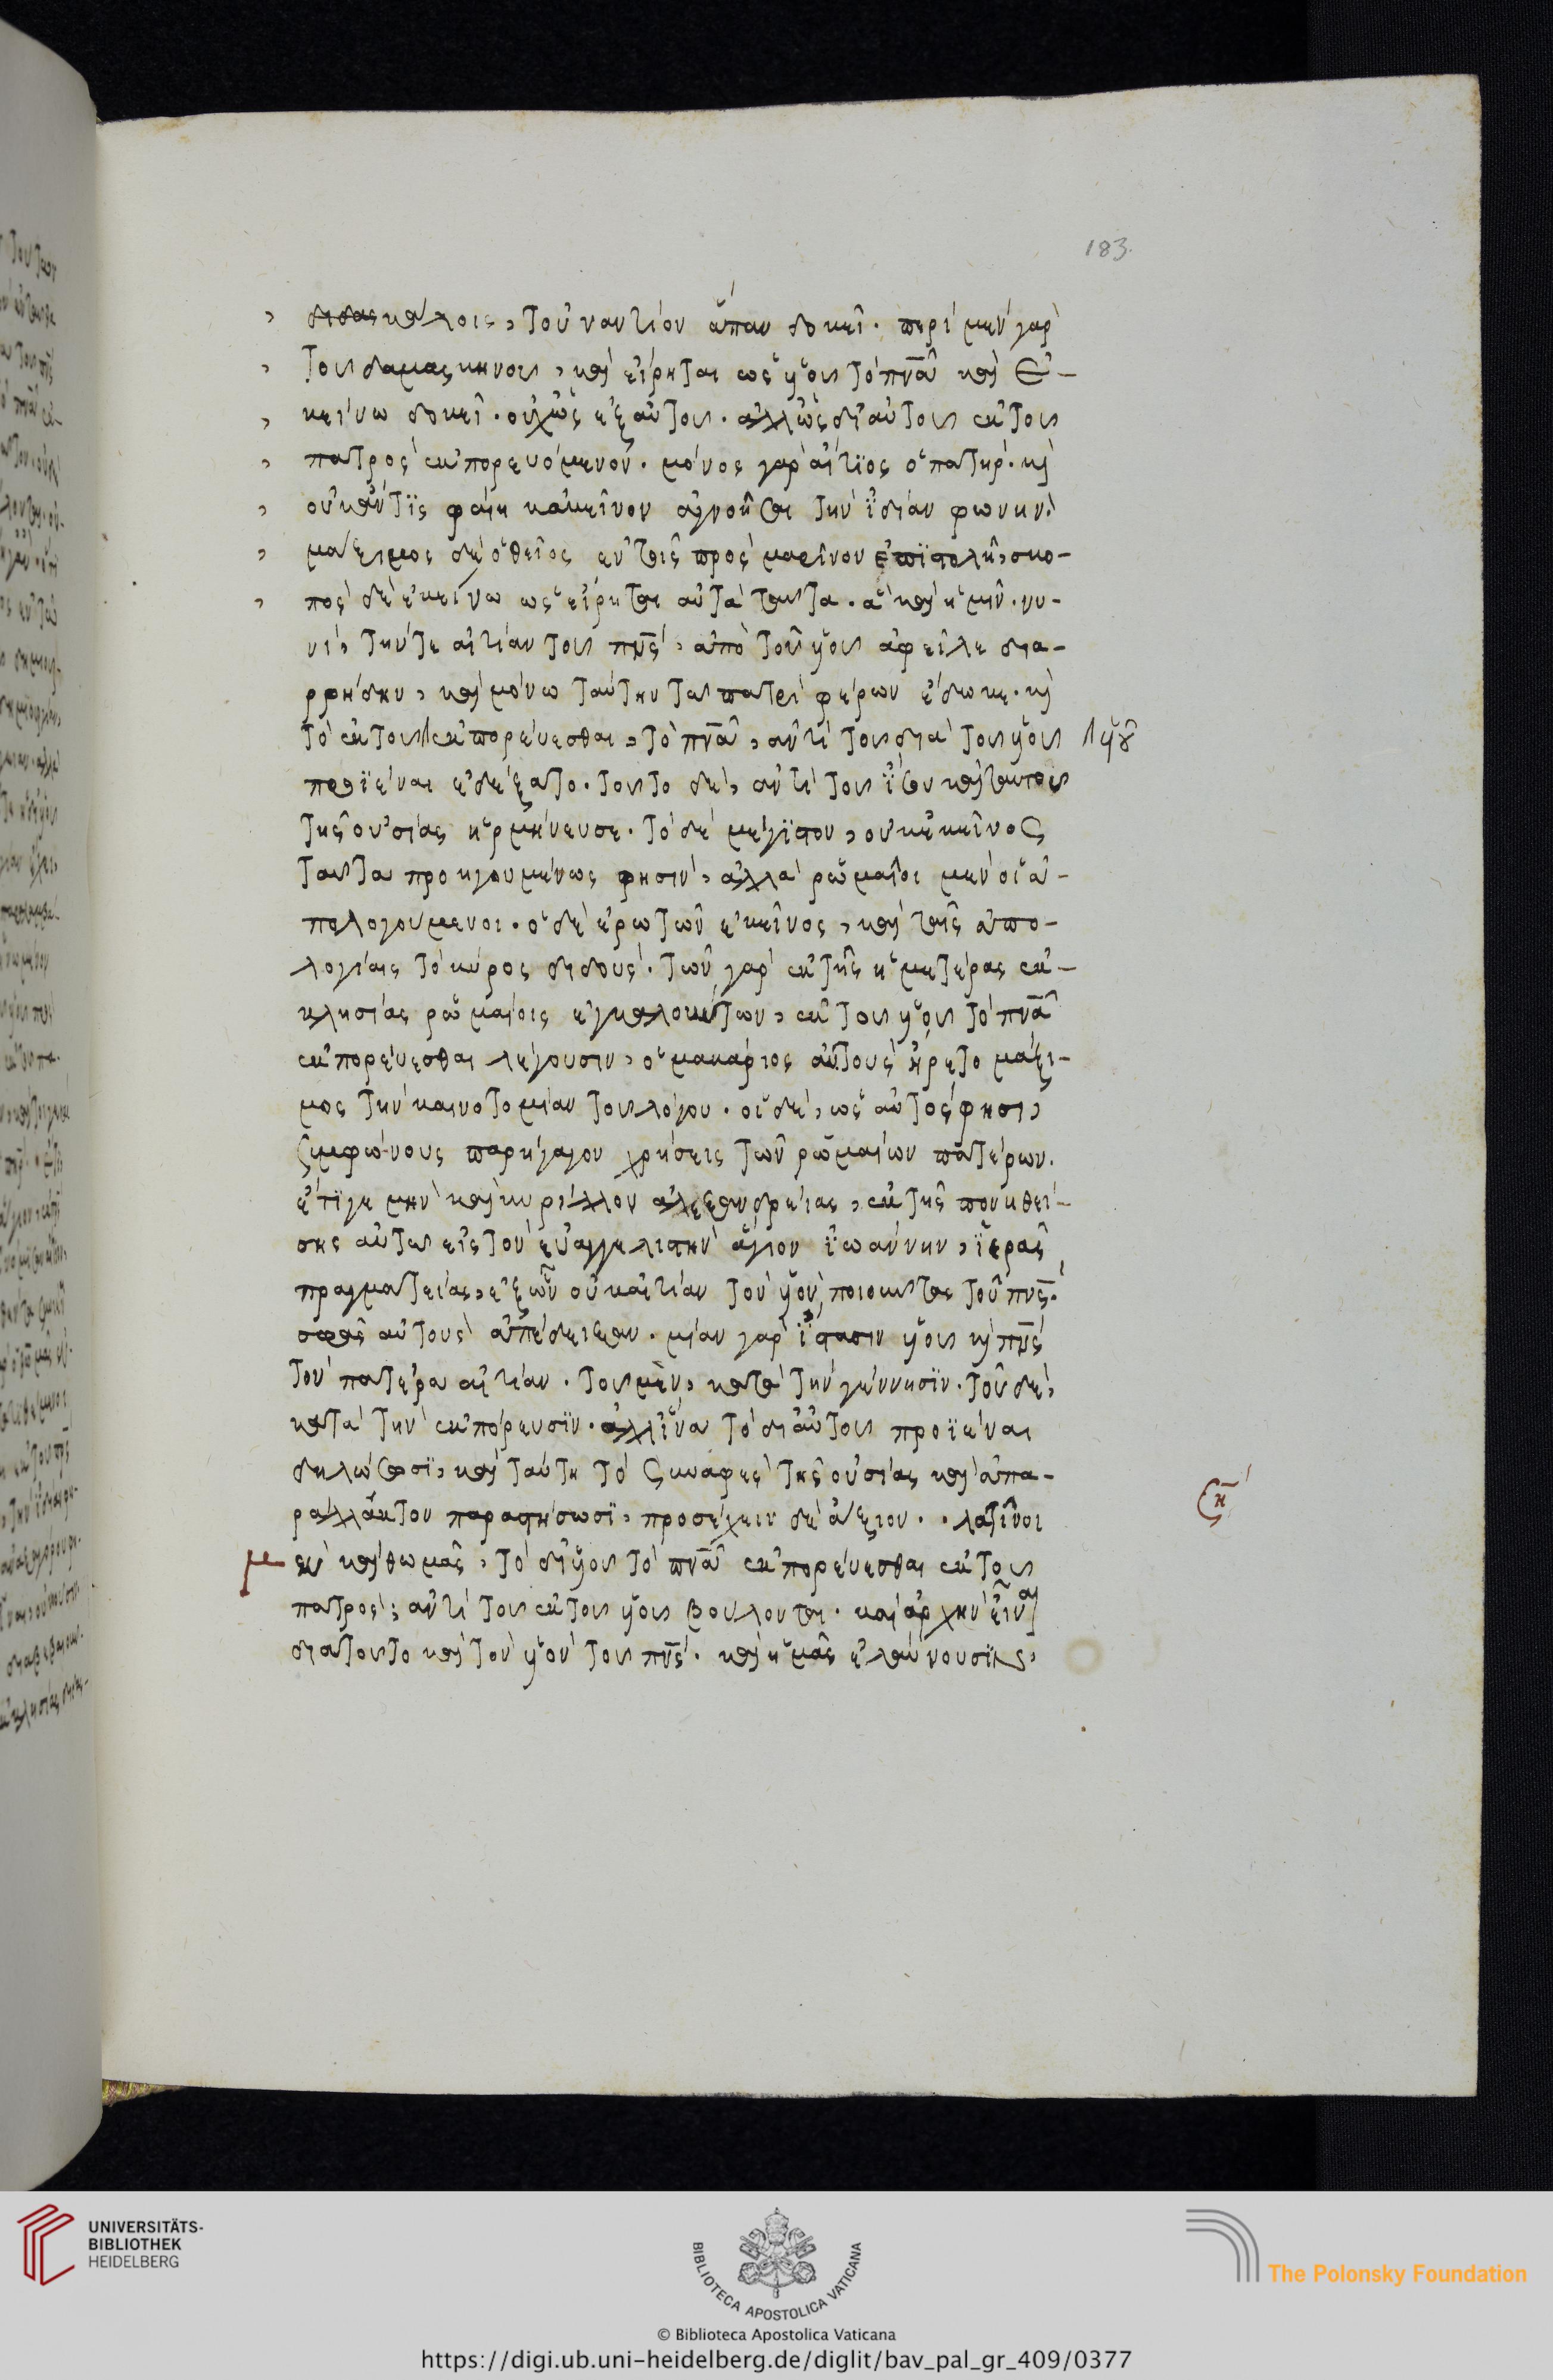 183.
διδασκάλοις, τοὐναντίον ἅπαν δοκεῖ. περὶ μὲν γὰρ
τοῦ δαμασκηνοῦ, καὶ εἴρηται ὡς υἱοῦ τὸ πνᾶ καὶ ἐ-
κείνω δοκεῖ. οὐχ ὡς ἐξ αὐτοῦ. ἀλλ' ὡς δι' αὐτοῦ ἐκ τοῦ
πατρὸς ἐκπορευόμενον. μόνος γὰρ αἴτϊος ὁ πατήρ. κὶ
οὐκ ἄν τϊς φαίη κἀκεῖνον ἀγνοῆσαι τὴν ϊδίαν φωνήν.
μάξιμος δὲ ὁ θεῖος ἐν τῆ πρὸς μαρῖνον ἐπϊστολῆ, σκο-
πὸς δὲ ἐκείνω ὡς εἴρηται αὐτὰ ταῦτα. ἃ καὶ ἡμῖν. νυ-
νὶ, τήν τε αἰτίαν τοῦ πνς, ἀπὸ τοῦ υἱοῦ ἀφεῖλε δια-
ρρήδην, καὶ μόνω ταύτην τῶ πατρὶ φέρων ἔδωκε. κὶ
τὸ ἐκ τοῦ ἐκπορεύεσθαι, τὸ πνᾶ, ἀντὶ τοῦ διὰ τοῦ υἱοῦ υἱοῦ
προϊέναι ἐδέξατο. τοῦτο δὲ, ἀντὶ τοῦ
τῆς οὐσίας ἡρμήνευσε. τὸ δὲ μέγϊστον, οὐκ ἐκεῖνος
ταῦτα προηγουμένως φησὶν, ἀλλὰ ῥωμαῖοι μὲν οἱ ἀ-
πολογούμενοι. ὁ δὲ ἐρωτῶν ἐκεῖνος, καὶ ταῖς ἀπο-
λογίαις τὸ κύρος διδούς. τῶν γὰρ ἐκ τῆς ἡμετέρας ἐκ-
κλησίας ῥωμαίοις ἐγκαλούντων, ἐκ τοῦ υἱοῦ τὸ πνᾶ
ἐκπορεύεσθαι λέγουσιν, ὁ μακάριος αὐτοὺς ἤρετο μάξι-
μος τὴν καινοτομίαν τοῦ λόγου. οἱ δὲ, ὡς αὐτός φησι,
συμφώνους παρήγαγον χρήσεις τῶν ῥωμαίων πατέρων.
ἔτϊ γε μὴν καὶ κυρίλλου ἀλεξανδρείας, ἐκ τῆς πονηθεί-
σης αὐτῶ εἰς τὸν εὐαγγελιστὴν ἅγιον ϊωάννην, ϊερᾶς
πραγματείας, ἐξ ὧν οὐκ αἰτίαν τὸν υἱὸν ποιοῦντας τοῦ πνς.
σφᾶς αὐτοὺς ἀπέδειξαν. μίαν γὰρ ϊσασιν υἱοῦ κὶ πνς
τὸν πατέρα αἰτίαν. τοῦ μὲν, κατὰ τὴν γέννησϊν. τοῦ δὲ,
κατὰ τὴν ἐκπόρευσϊν. ἀλλ' ἵνα τὸ δι' αὐτοῦ προϊέναι
δηλώσωσϊ, καὶ ταύτη τὸ συναφὲς τῆς οὐσίας καὶ ἀπα-
ράλλακτον παραστήσωσϊ, προσέχειν δὲ ἄξιον. λατῖνοι
μὲν καὶ θωμᾶς, τὸ δι' υἱοῦ τὸ πνᾶ ἐκπορεύεσθαι ἐκ τοῦ
πατρὸς, ἀντὶ τοῦ ἐκ τοῦ υἱοῦ βούλονται. καὶ ἀρχὴν εἶναι
διὰ τοῦτο καὶ τὸν υἱὸν τοῦ πνς. καὶ ἡμᾶς ἐλαύνουσϊν,
UNIVERSITÄTS-
BIBLIOTHEK
HEIDELBERG
BIBLIOTECA APOSTOLICA VATICANA
© Biblioteca Apostolica Vaticana
The Polonsky Foundation
https://digi.ub.uni-heidelberg.de/diglit/bav_pal_gr_409/0377